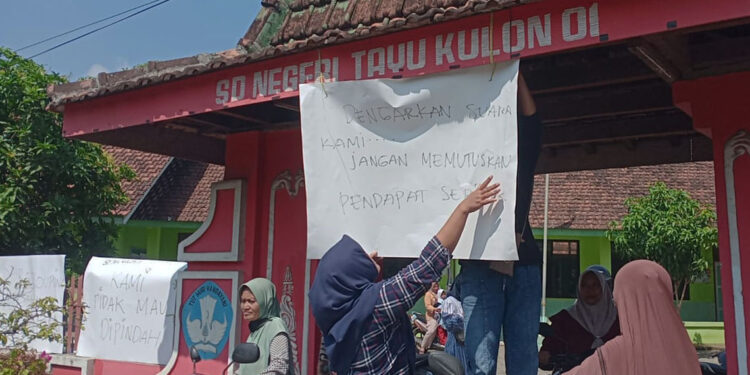 SD NEGERI TAYU KULON 01
DENGARKAN SUARA
KAMI....
JANGAN MEMUTUSKAN
PENDAPAT
KAMI
TIDAK MAU
DIPINDAH
TUT WURI HANDAYANI